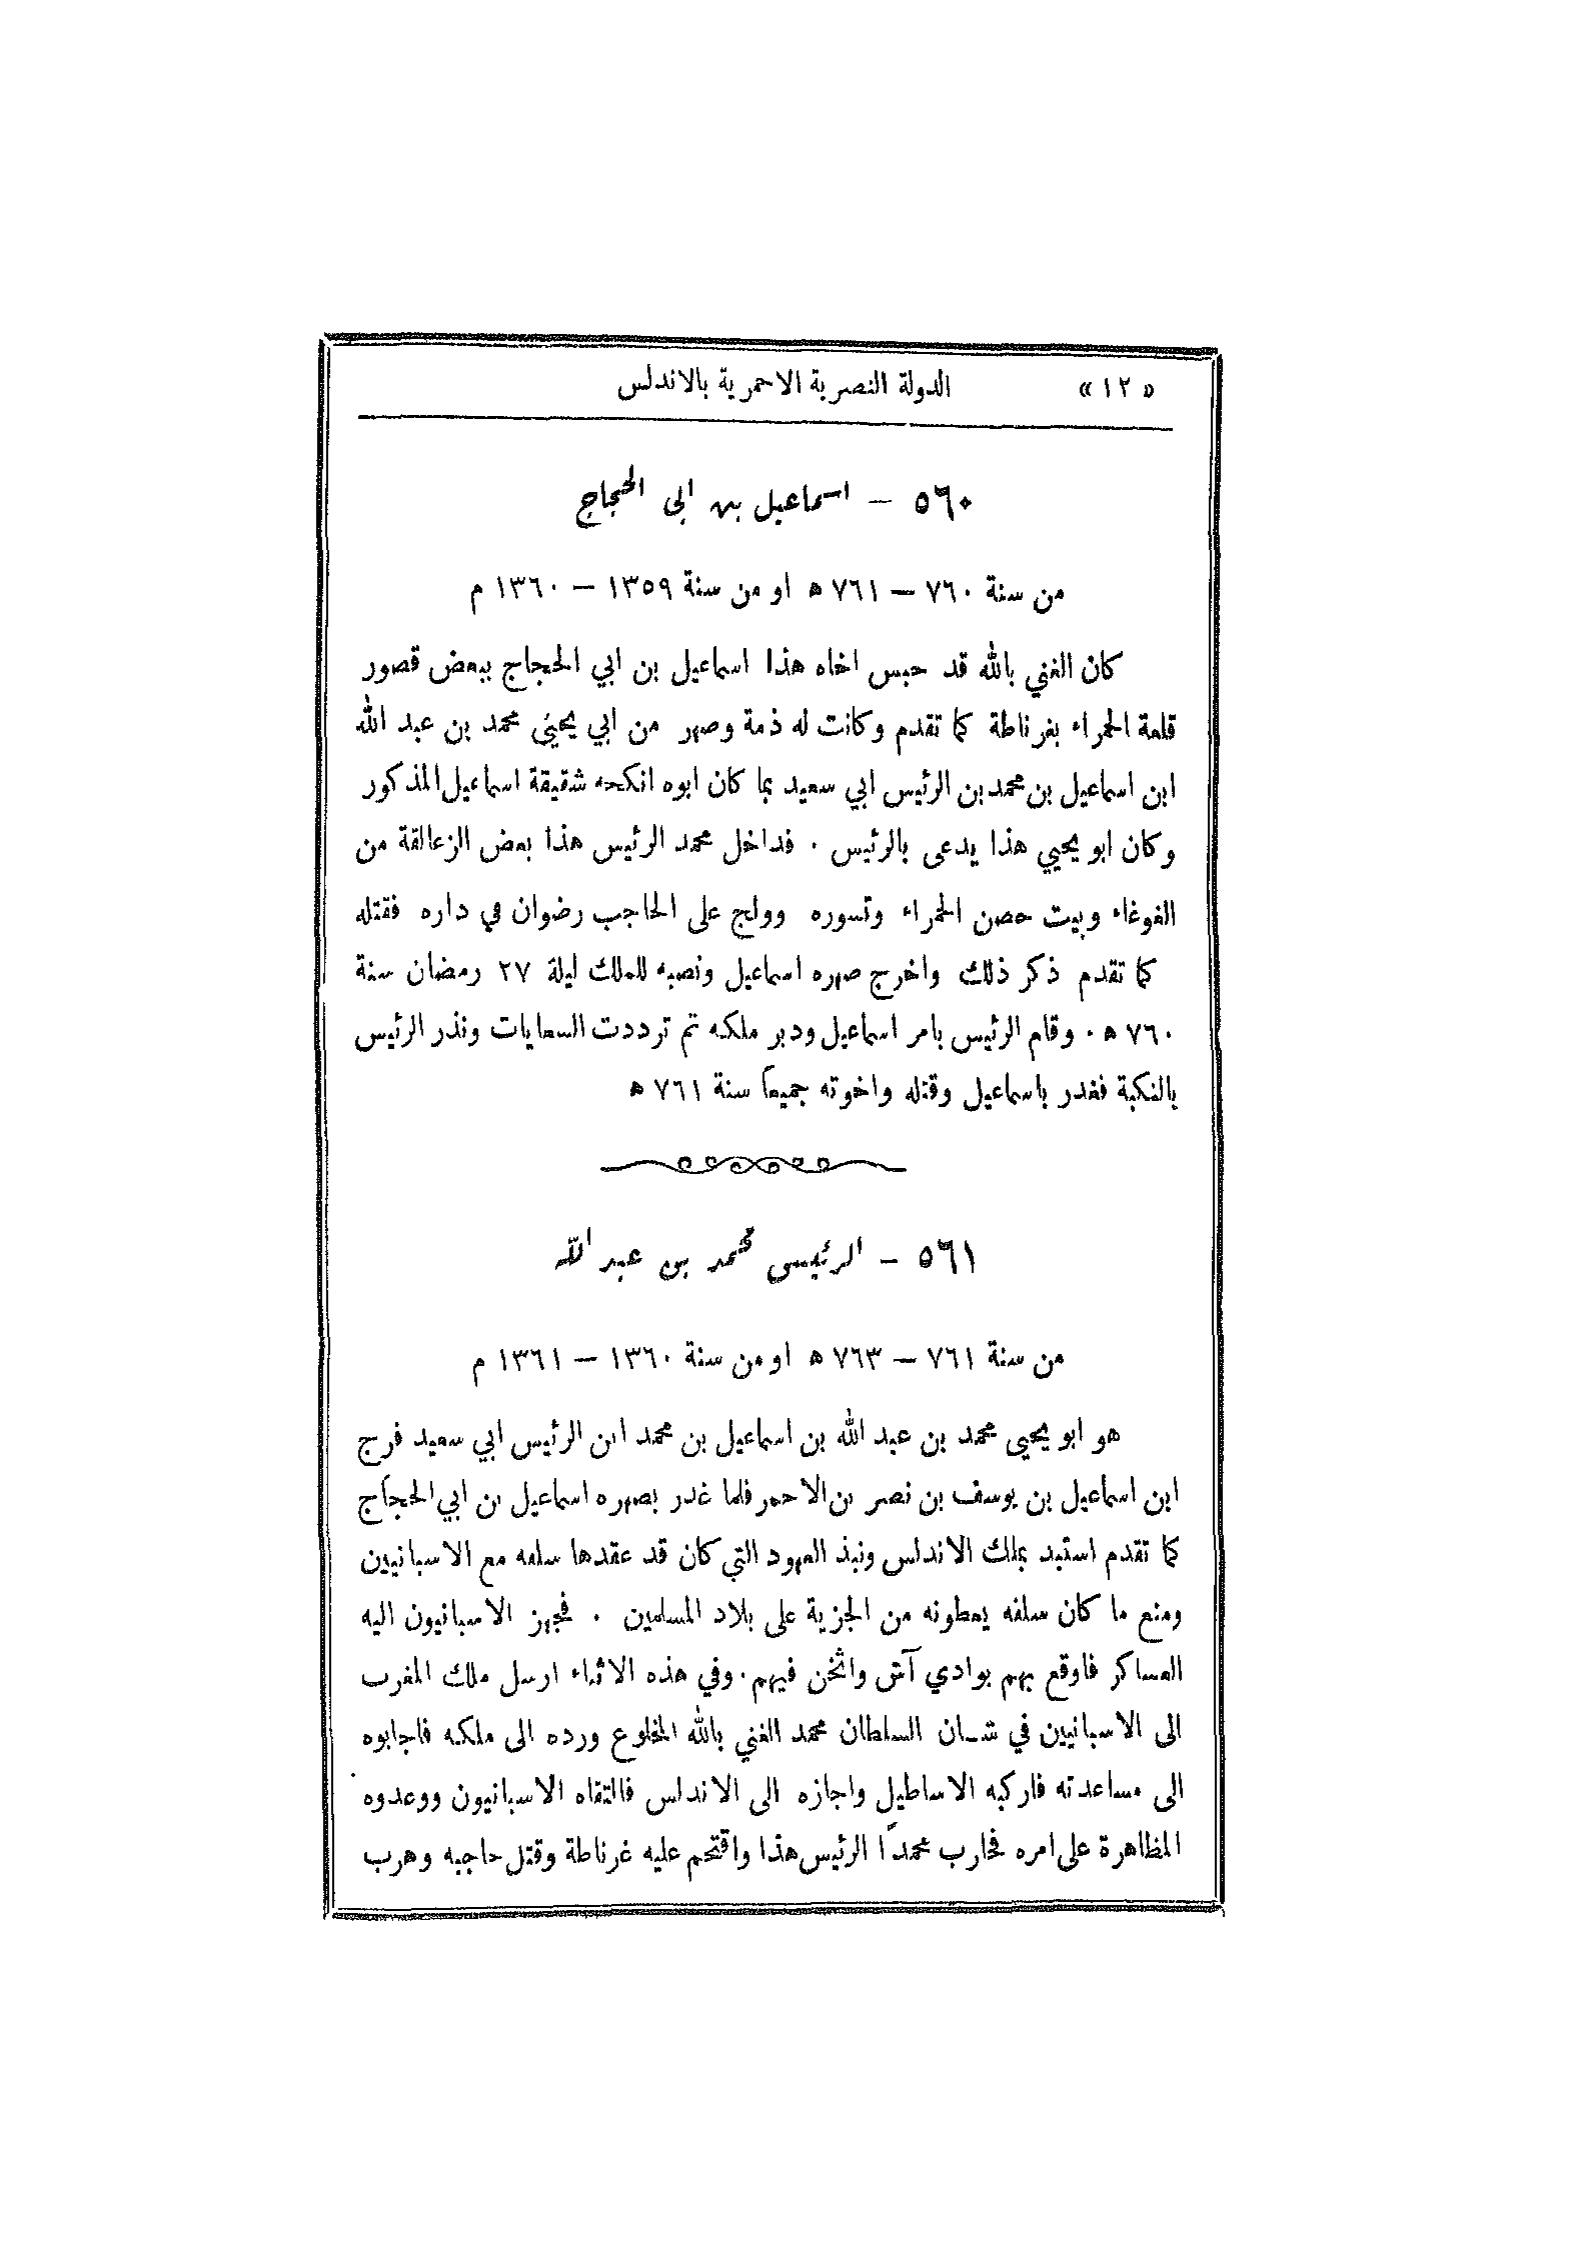 «١٢» الدولة النصرية الاحمرية بالاندلس
٥٦٠ – اسماعيل بن ابى الحجاج
من سنة ٧٦٠ – ٧٦١ ه او من سنة ١٣٥٩ – ١٣٦٠ م
كان الغني بالله قد حبس اخاه هذا اسماعيل بن ابي الحجاج ببعض قصور
قلعة الحمراء بغرناطة كما تقدم وكانت له ذمة وصهر من ابي يحيى محمد بن عبد الله
ابن اسماعيل بن محمد بن الرئيس ابي سعيد بما كان ابوه انكحه شقيقة اسماعيل المذكور
وكان ابو يحيي هذا يدعى بالرئيس . فداخل محمد الرئيس هذا بعض الزعالقة من
الغوغاء وبيت حصن الحمراء وتسوره وولج على الحاجب رضوان في داره فقتله
كما تقدم ذكر ذلك واخرج صهره اسماعيل ونصبه للملك ليلة ٢٧ رمضان سنة
٧٦٠ ه . وقام الرئيس بامر اسماعيل ودبر ملكه ثم ترددت السعايات ونذر الرئيس
بالنكبة فغدر باسماعيل وقتله واخوته جميعاً سنة ٧٦١ ه
٥٦١ – الرئيس محمد بن عبد الله
من سنة ٧٦١ – ٧٦٣ ه او من سنة ١٣٦٠ – ١٣٦١ م
هو ابو يحيى محمد بن عبد الله بن اسماعيل بن محمد ابن الرئيس ابي سعيد فرج
ابن اسماعيل بن يوسف بن نصر بن الاحمر فلما غدر بصهره اسماعيل بن ابي الحجاج
كما تقدم استبد بملك الاندلس ونبذ العهود التي كان قد عقدها سلفه مع الاسبانيين
ومنع ما كان سلفه يعطونه من الجزية على بلاد المسلمين . فجهز الاسبانيون اليه
العساكر فاوقع بهم بوادي آش واثخن فيهم . وفي هذه الاثناء ارسل ملك المغرب
الى الاسبانيين في شان السلطان محمد الغني بالله المخلوع ورده الى ملكه فاجابوه
الى مساعدته فاركبه الاساطيل واجازه الى الاندلس فالتقاه الاسبانيون ووعدوه
المظاهرة على امره فحارب محمداً الرئيس هذا واقتحم عليه غرناطة وقتل حاجبه وهرب